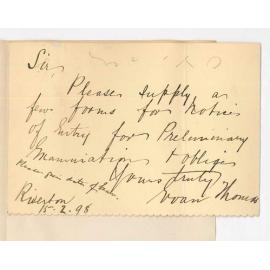 Sir,
Please supply a
few forms for Notice
of Entry for Preliminary
Examination & oblige
Yours truly
Thomas
Riverton
15.2.98